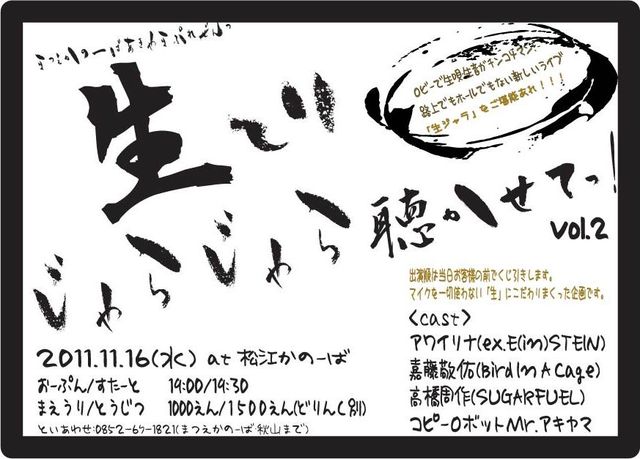 まつえかのーばあきやまぷれぜんつ
生で
じゃらじゃら
聴かせてっ!
vol.2
ロビーで生唄生音がチンコドマン、
路上でもホールでもない新しいライブ
「生ジャラ」をご堪能あれ!!!
出演順は当日お客様の前でくじ引きします。
マイクを一切使わない「生」にこだわりまくった企画です。
<cast>
アワイリナ(ex.E(im)STEIN)
嘉藤敬佑(Bird In A Cage)
高橋周作(SUGARFUEL)
コピーロボットMr.アキヤマ
2011.11.16(水) at 松江かのーば
おーぷん/すたーと 19:00/19:30
まえうり/とうじつ 1000えん/1500えん(どりんく別)
といあわせ:0852-67-1821(まつえかのーば秋山まで)